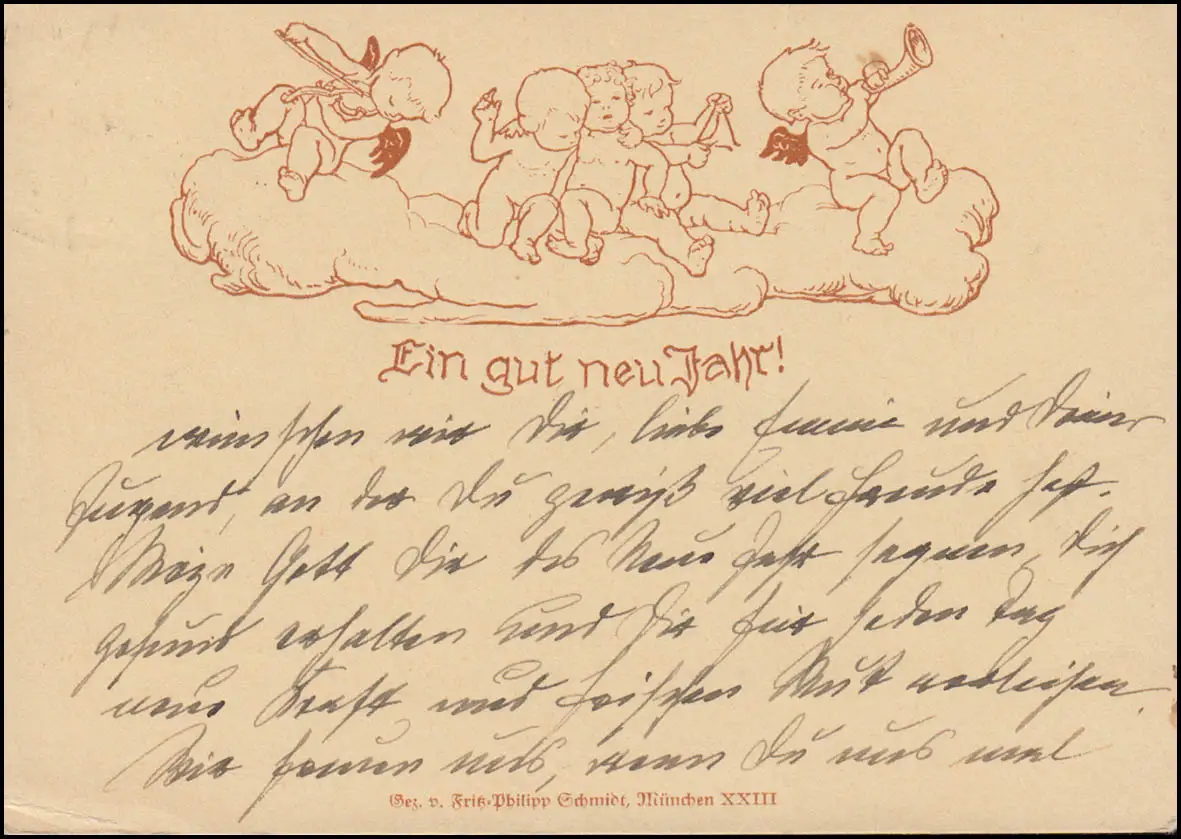 Ein gut neu Jahr!
wünschen wir Dir, liebe und Deiner
Jugend, an der Du gewiß viel Freude hast.
Möge Gott Dir das Neue Jahr segnen, Dich
gesund erhalten und Dir für jeden Tag
neue Kraft und frischen Mut verleihen.
Wir freuen uns, wenn Du uns mal
Gez. v. Fritz-Philipp Schmidt, München XXIII